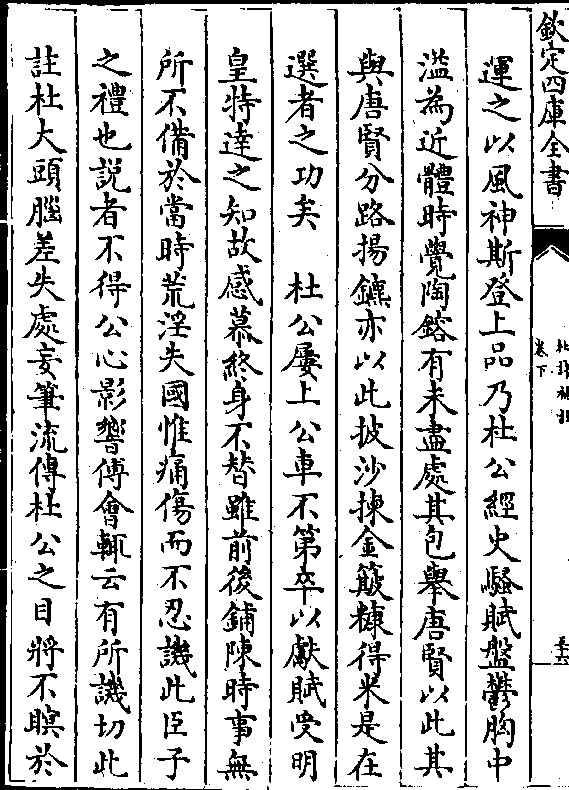 欽定四庫全書
卷下
運之以風神斯登上品乃杜公經史騷賦盤鬱胸中
濫為近體時覺陶鎔有未盡處其包舉唐賢以此其
與唐賢分路揚鑣亦以此披沙揀金簸糠得米是在
選者之功矣　杜公屢上公車不第卒以獻賦受明
皇特達之知故感慕終身不替雖前後鋪陳時事無
所不備於當時荒淫失國惟痛傷而不忍譏此臣子
之禮也説者不得公心影響傅會輒云有所譏切此
註杜大頭腦差失處妄筆流傳杜公之目將不瞑於